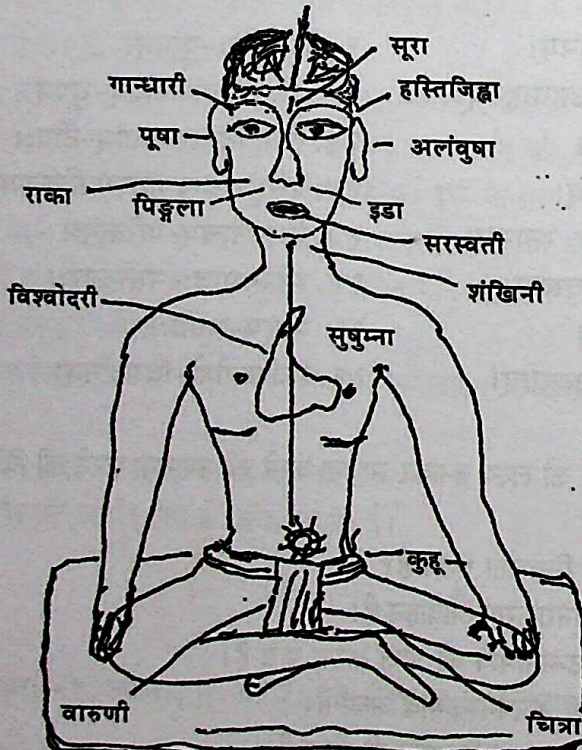 सूरा
गान्धारी
हस्तिजिह्वा
पूषा
अलंवुषा
राका
पिङ्गला
इडा
सरस्वती
शंखिनी
विश्वोदरी
सुषुम्ना
कुहू
वारुणी
चित्रा